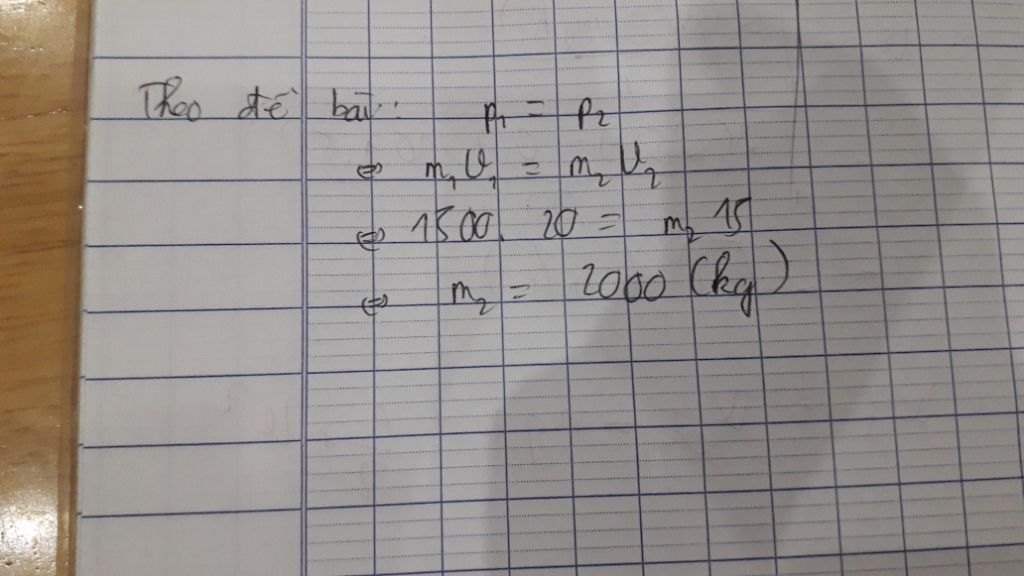 Theo đề bài: p₁ = p₂
⇔ m₁v₁ = m₂v₂
⇔ 1500. 20 = m₂ 15
⇔ m₂ = 2000 (kg)